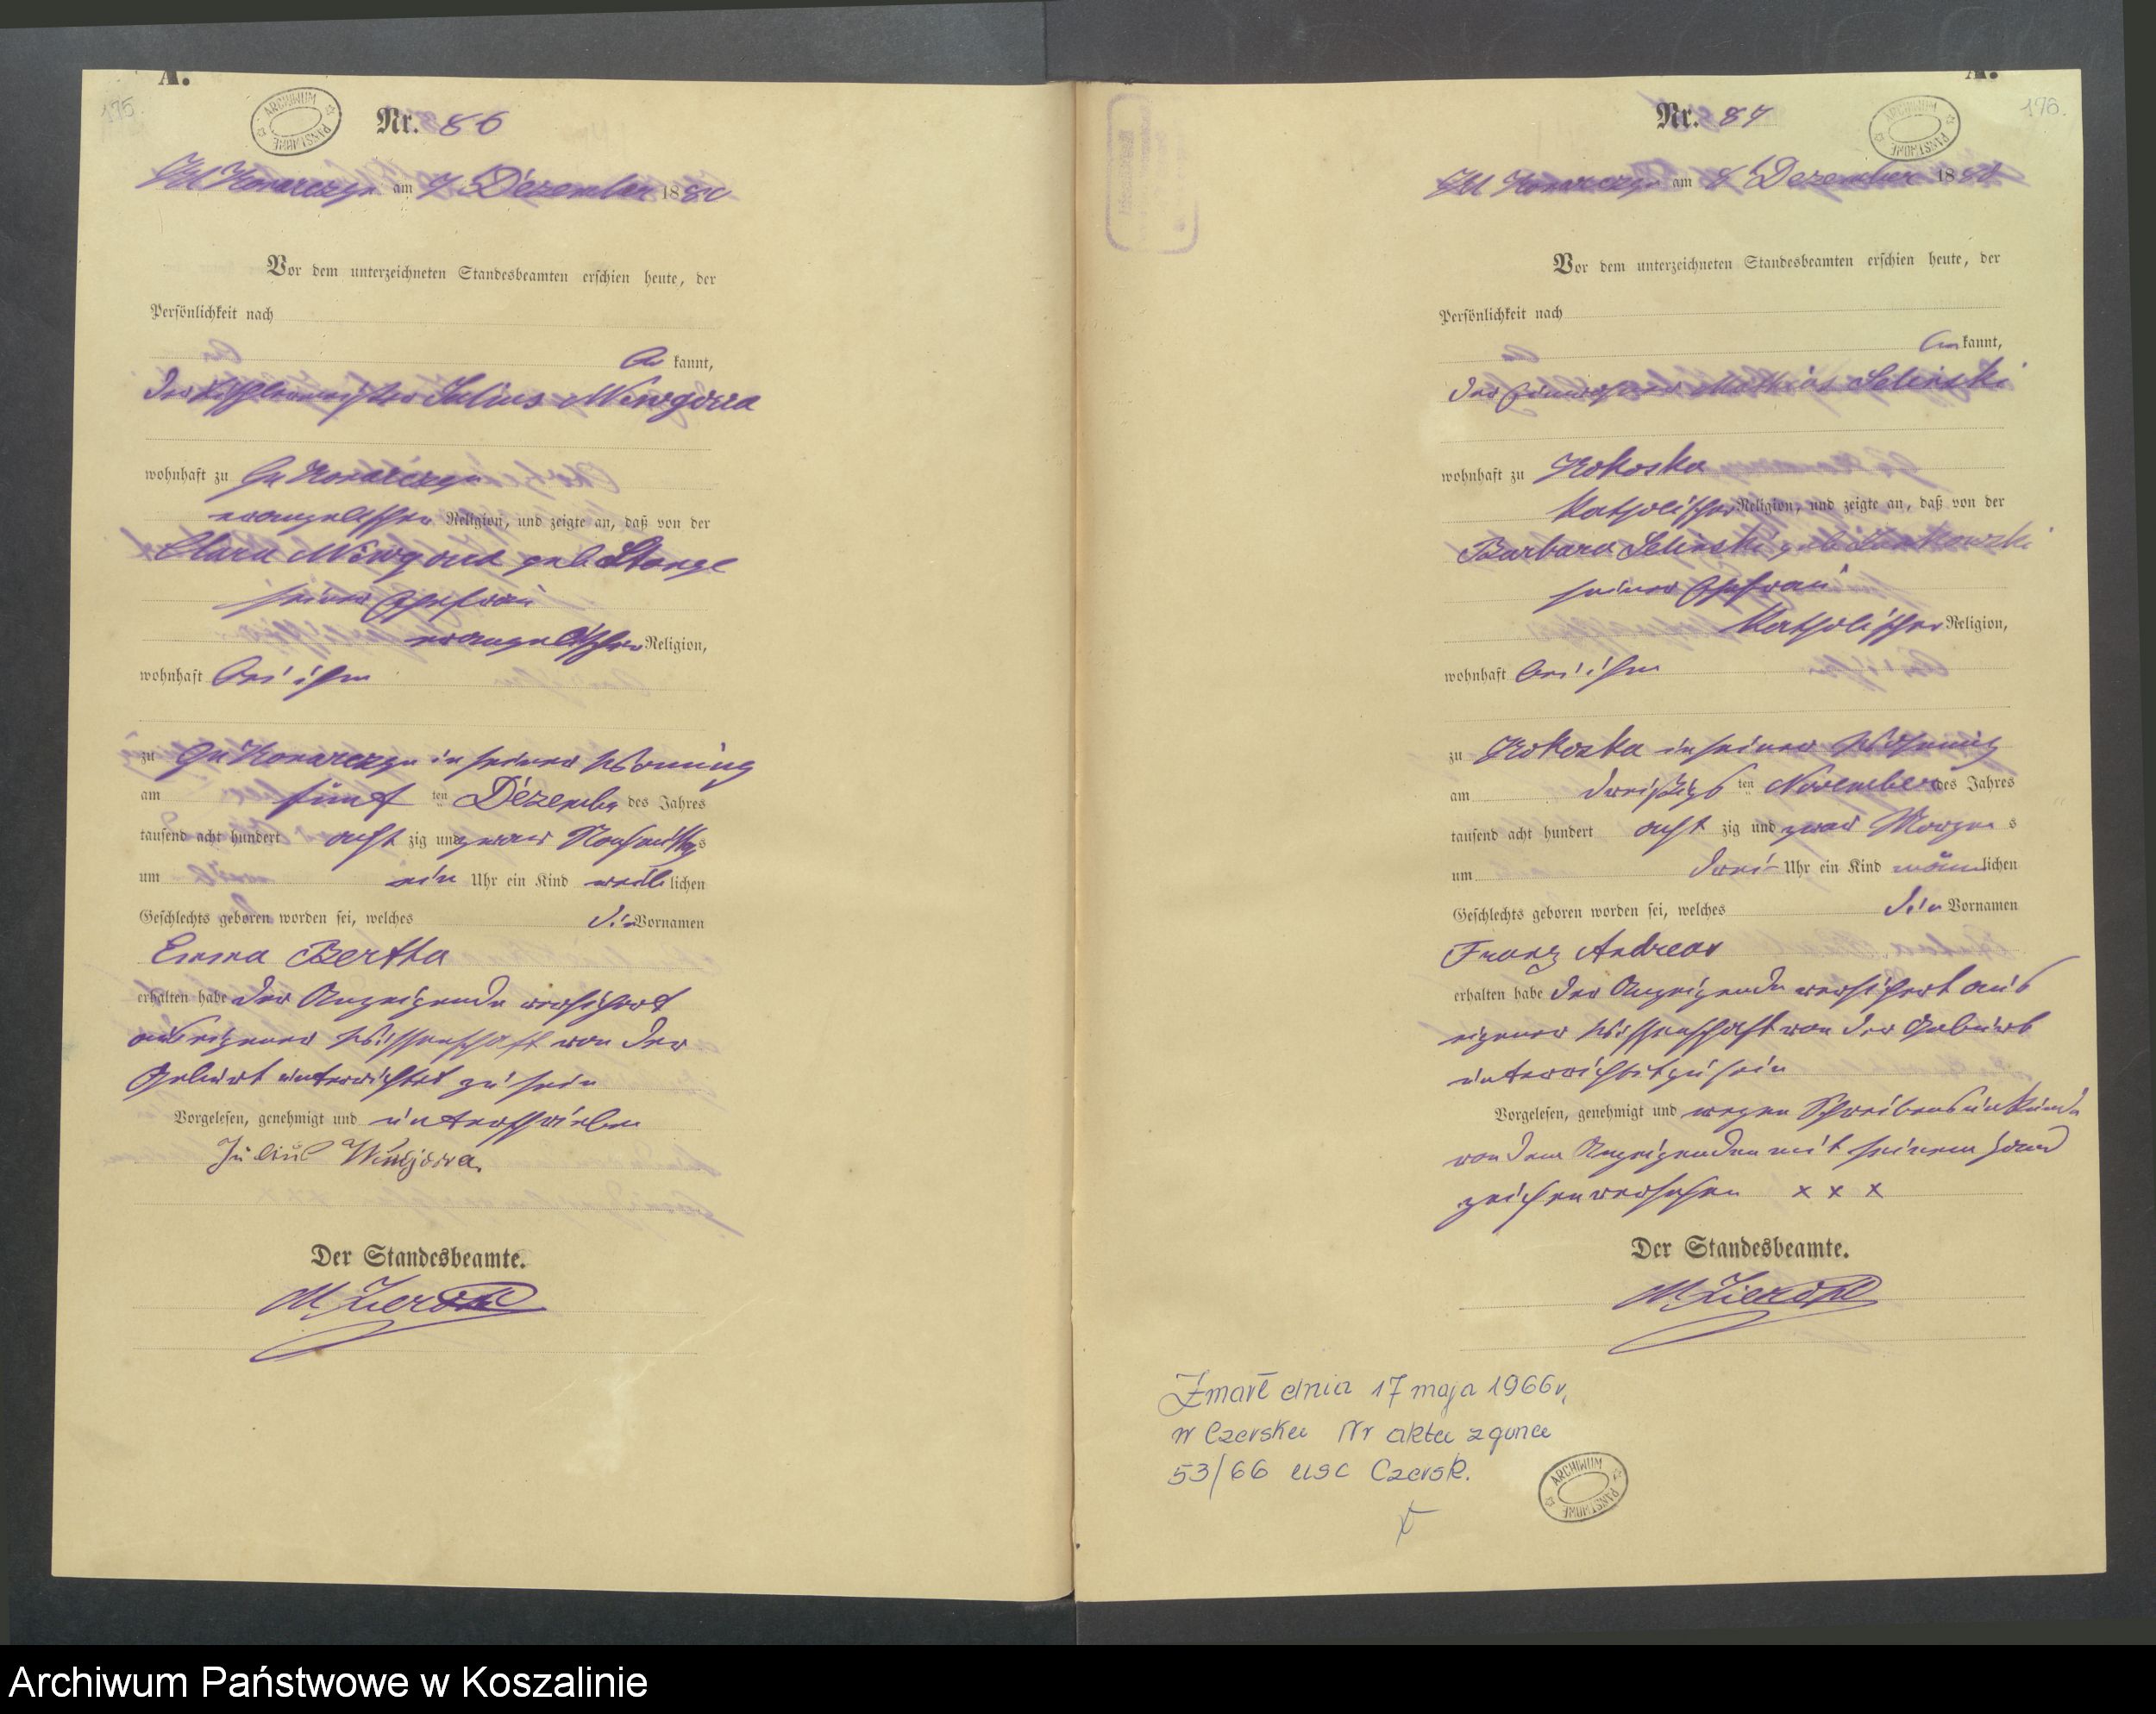 A.
175.
ARCHIWUM PAŃSTWOWE
Nr. 86
Kl Konarczyn am 7 Dezember 1880
Vor dem unterzeichneten Standesbeamten erschien heute, der
Persönlichkeit nach
be kannt,
der Julius
wohnhaft zu Gr Konarczyn
evangelischer Religion, und zeigte an, daß von der
Clara geb Stange
seiner Ehefrau
evangelischer Religion,
wohnhaft bei ihm
zu Gr Konarczyn in seiner Wohnung
am fünf ten Dezember des Jahres
tausend acht hundert acht zig und zwar Nachmittags
um ein Uhr ein Kind weiblichen
Geschlechts geboren worden sei, welches die Vornamen
Emma Bertha
erhalten habe der Anzeigende versichert
aus eigener Wissenschaft von der
Geburt unterrichtet zu sein
Vorgelesen, genehmigt und unterschrieben
Julius
Der Standesbeamte.
A.
176.
ARCHIWUM PAŃSTWOWE
Nr. 87
Kl Konarczyn am 8 Dezember 1880
Vor dem unterzeichneten Standesbeamten erschien heute, der
Persönlichkeit nach
be kannt,
der Einwohner Mathias Selinski
wohnhaft zu Kokoska
katholischer Religion, und zeigte an, daß von der
Barbara Selinski geb
seiner Ehefrau
katholischer Religion,
wohnhaft bei ihm
zu Kokoska in seiner Wohnung
am dreißigs ten November des Jahres
tausend acht hundert acht zig und zwar Morgens
um drei Uhr ein Kind männlichen
Geschlechts geboren worden sei, welches die Vornamen
Franz Andreas
erhalten habe der Anzeigende versichert aus
eigener Wissenschaft von der Geburt
unterrichtet zu sein
Vorgelesen, genehmigt und wegen Schreibensunkunde
von dem Anzeigenden mit seinem Hand
zeichen versehen x x x
Der Standesbeamte.
Zmarł dnia 17 maja 1966 r.
w Czersku Nr aktu zgonu
53/66 USC Czersk.
ARCHIWUM PAŃSTWOWE
Archiwum Państwowe w Koszalinie